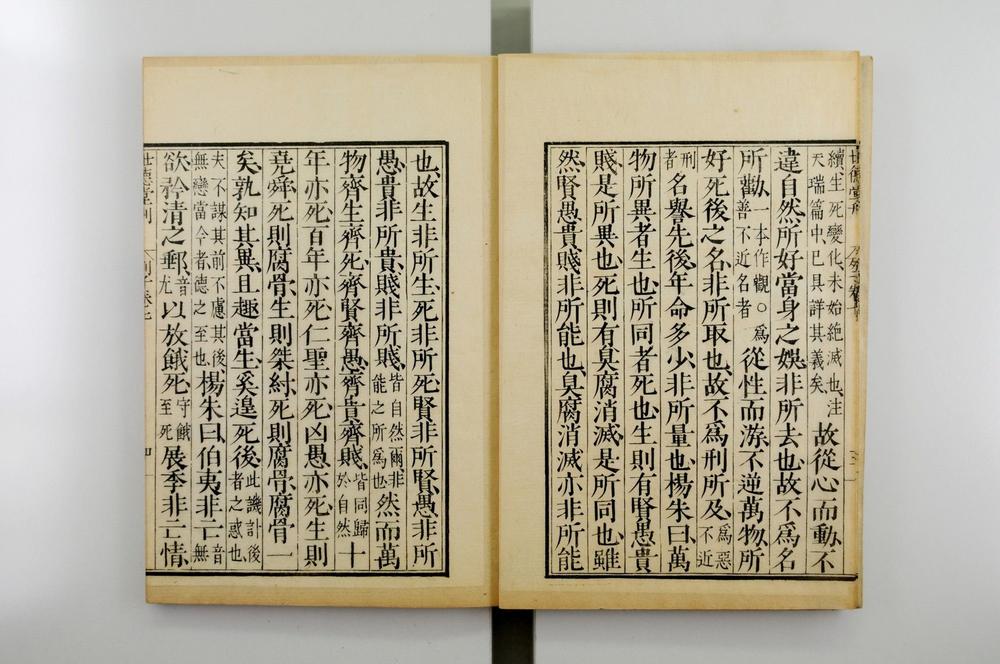 世德堂刊
續生死變化未始絶滅也注天瑞篇中已具詳其義矣故從心而動不
違自然所好當身之娛非所去也故不爲名
所勸一本作觀○爲善不近名者從性而游不逆萬物所
好死後之名非所取也故不爲刑所及爲惡不近
刑者名譽先後年命多少非所量也楊朱曰萬
物所異者生也所同者死也生則有賢愚貴
賤是所異也死則有臭腐消滅是所同也雖
然賢愚貴賤非所能也臭腐消滅亦非所能
也故生非所生死非所死賢非所賢愚非所
愚貴非所貴賤非所賤皆自然爾非能之所爲也然而萬
物齊生齊死齊賢齊愚齊貴齊賤皆同歸於自然十
年亦死百年亦死仁聖亦死凶愚亦死生則
堯舜死則腐骨生則桀紂死則腐骨腐骨一
矣孰知其異且趣當生奚遑死後此譏計後者之惑也
夫不謀其前不慮其後無戀當今者德之至也楊朱曰伯夷非亡音無
欲矜清之郵音尤以放餓死守餓至死展季非亡情
世德堂刊 列子卷七 四